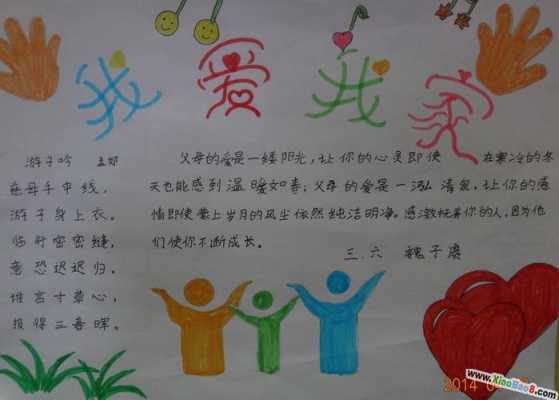 我爱我家
游子吟 孟郊
慈母手中线，
游子身上衣。
临行密密缝，
意恐迟迟归。
谁言寸草心，
报得三春晖。
父母的爱是一缕阳光，让你的心灵即使 在寒冷的冬
天也能感到温暖如春；父母的爱是一泓清泉，让你的感
情即使蒙上岁月的风尘依然纯洁明净。感激抚养你的人，因为他
们使你不断成长。
三.六 魏子涵
2014
www.XiaoBao8.com